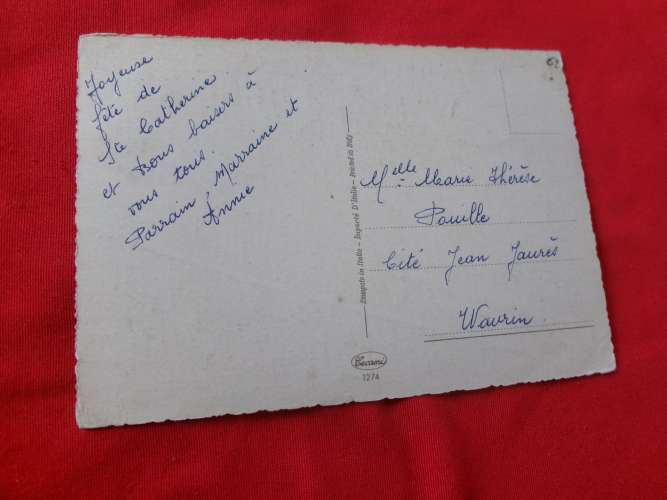 Joyeuse
fête de
Ste Catherine
et Bons baisers à
vous tous.
Parrain, Marraine et
Annie
Melle Marie Thérèse
Pouille
Cité Jean Jaurès
Wavrin
Imprimé in Italie - Importé D'Italie - Printed in Italy
Cecami
1274
62